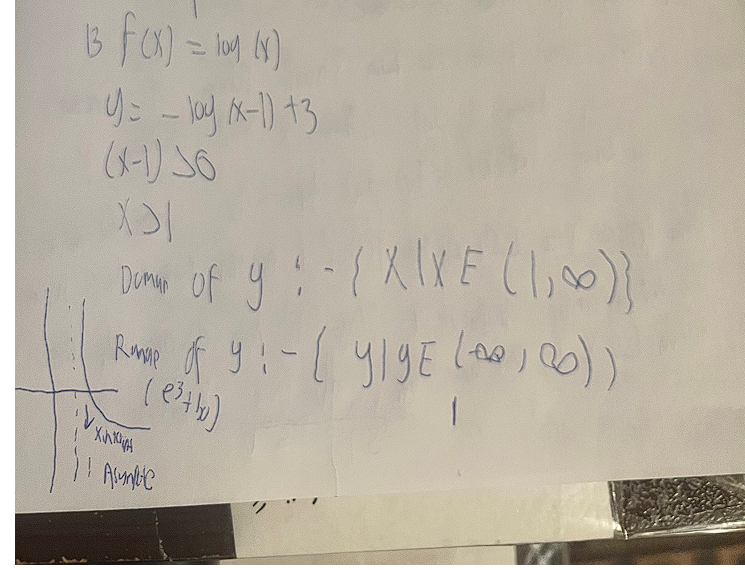 13 f(x) = log (x)
y = - log (x-1) +3
(x-1) >0
x >1
Domain of y : - { x | x E ( 1 , ∞ ) }
Range of y : - { y | y E ( -∞ , ∞ ) )
( e³+1,0)
x intercept
Asymptote